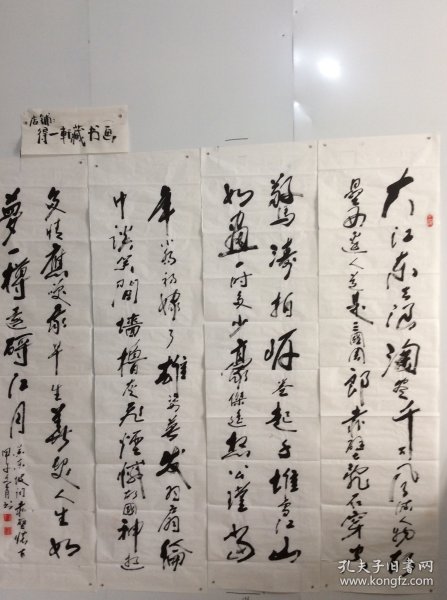 店铺:
得一轩藏书画
大江东去浪淘尽千古风流人物故
垒西边人道是三国周郎赤壁乱石穿空
惊涛拍岸卷起千堆雪江山
如画一时多少豪杰遥想公瑾当
年小乔初嫁了雄姿英发羽扇纶
巾谈笑间墙橹灰飞烟灭故国神游
多情应笑我早生华发人生如
梦一樽还酹江月
东坡词赤壁怀古
孔夫子旧书网
www.kongfz.com